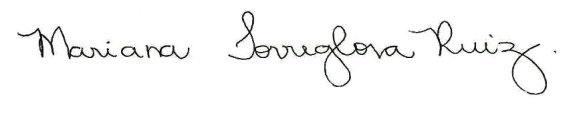 Mariana Torreglosa Ruiz.